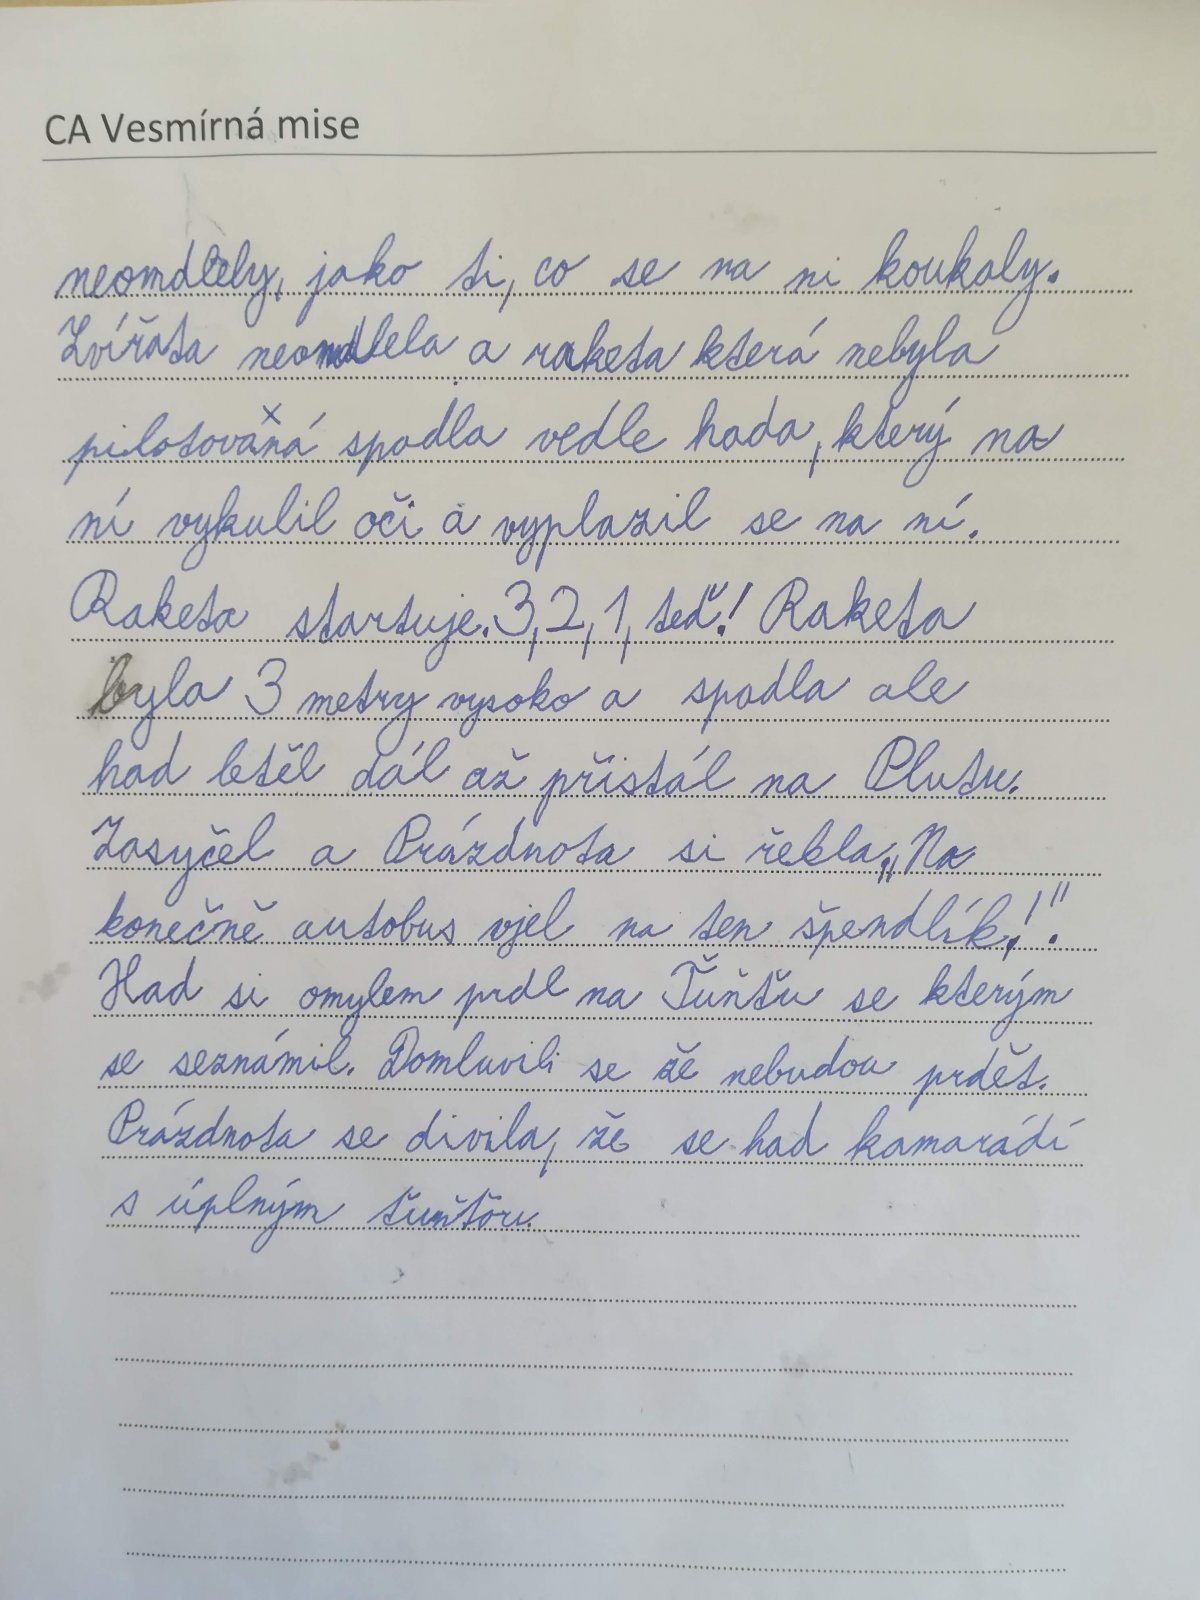 CA Vesmírná mise
neomdlely, jako ti, co se na ni koukaly.
Zvířata neomdlela a raketa která nebyla
pilotovaná spadla vedle hada, který na
ní vykulil oči a vyplazil se na ní.
Raketa startuje. 3, 2, 1, teď! Raketa
byla 3 metry vysoko a spadla ale
had letěl dál až přistál na Plutu.
Zasyčel a Prázdnota si řekla „Na
konečně autobus vjel na ten špendlík!".
Had si omylem prdl na Ťuňťu se kterým
se seznámil. Domluvili se že nebudou prdět.
Prázdnota se divila, že se had kamarádí
s úplným ťuňťou.